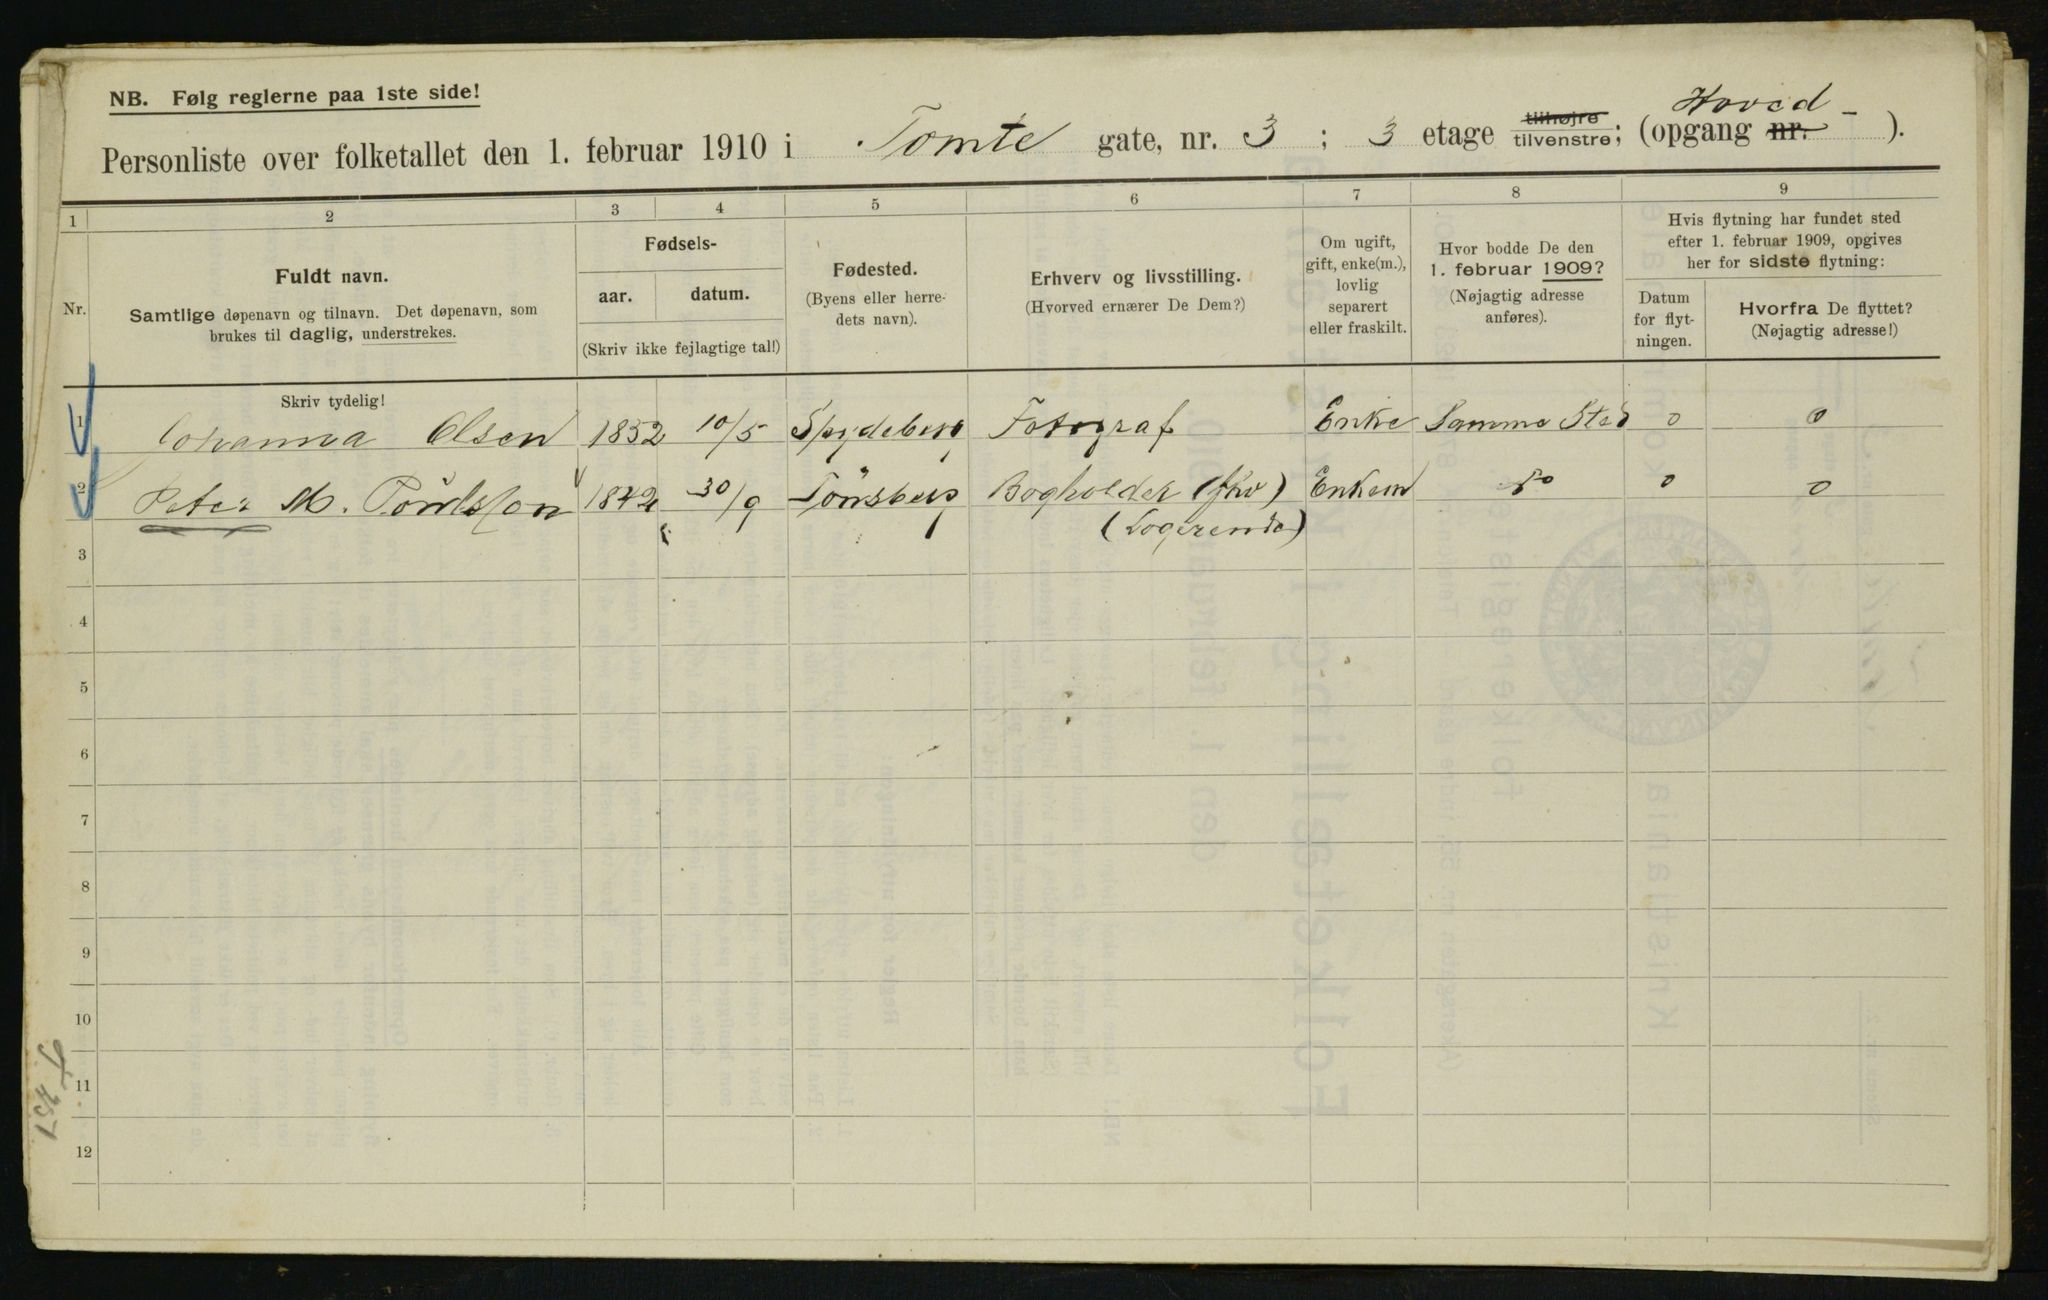 NB. Følg reglerne paa 1ste side!
Personliste over folketallet den 1. februar 1910 i Tomte gate, nr. 3 ; 3 etage tilhøjre tilvenstre; (opgang nr. Hoved - ).
1 2 3 4 5 6 7 8 9
Nr.
Fuldt navn.
Samtlige døpenavn og tilnavn. Det døpenavn, som
brukes til daglig, understrekes.
Fødsels-
aar. datum.
(Skriv ikke fejlagtige tal!)
Fødested.
(Byens eller herre-
dets navn).
Erhverv og livsstilling.
(Hvorved ernærer De Dem?)
Om ugift,
gift, enke(m.),
lovlig
separert
eller fraskilt.
Hvor bodde De den
1. februar 1909?
(Nøjagtig adresse
anføres).
Hvis flytning har fundet sted
efter 1. februar 1909, opgives
her for sidste flytning:
Datum
for flyt-
ningen.
Hvorfra De flyttet?
(Nøjagtig adresse!)
Skriv tydelig!
1 Johanna Olsen 1852 10/5 Spydeberg Fotograf Enke Samme Sted 0 0
2 Peter M. 1842 30/9 Tönsberg Bogholder (fhv) Enkem do 0 0
(Logerende)
3
4
5
6
7
8
9
10
11
12